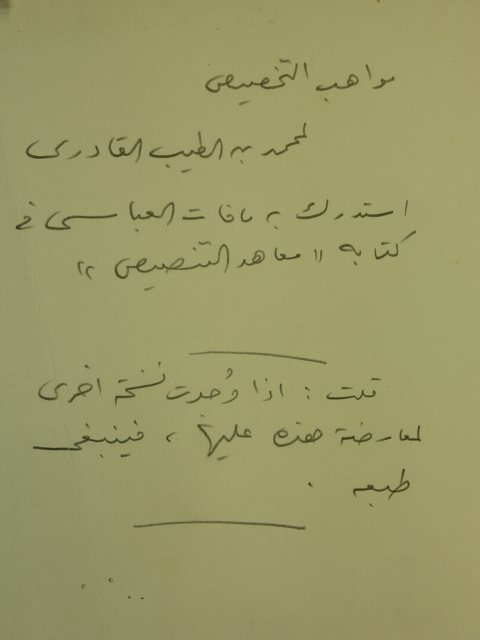 مواهب التخصيص
لمحمد بن الطيب القادرى
استدرك به ما فات العباسى في
كتابه " معاهد التنصيص "
قلت : اذا وُجدت نسخة اخرى
لمعارضة هذه عليها ، فينبغى
طبعه .